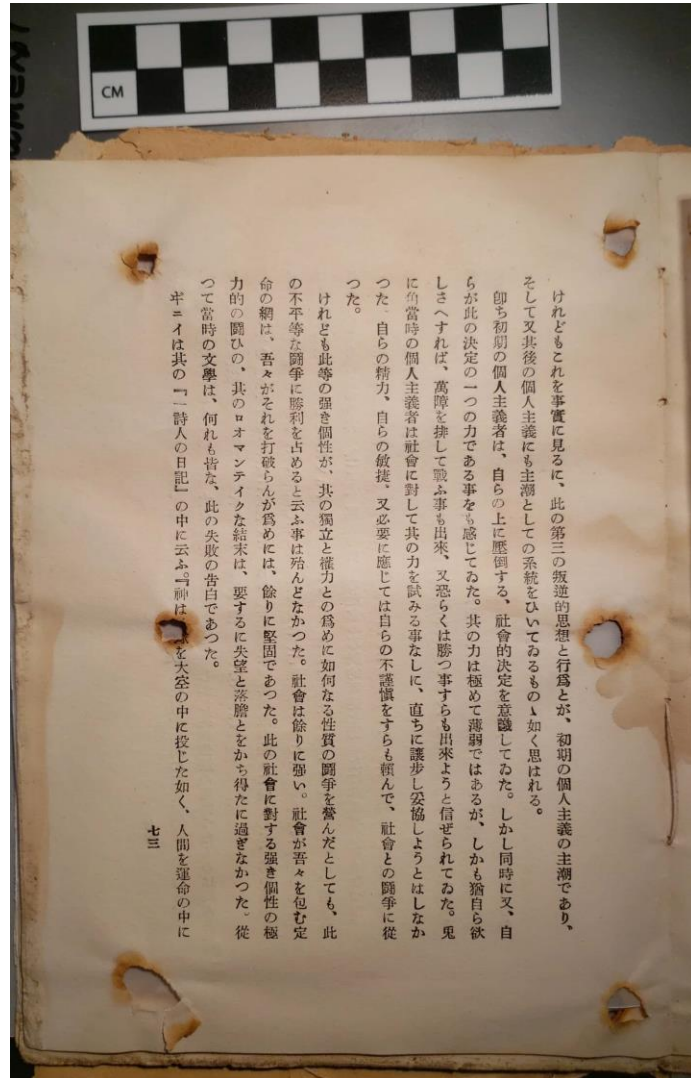 CM
けれどもこれを事實に見るに、此の第三の叛逆的思想と行爲とが、初期の個人主義の主潮であり、
そして又其後の個人主義にも主潮としての系統をひいてゐるものゝ如く思はれる。
卽ち初期の個人主義者は、自らの上に壓倒する、社會的決定を意識してゐた。しかし同時に又、自
らが此の決定の一つの力である事をも感じてゐた。其の力は極めて薄弱ではあるが、しかも猶自ら欲
しさへすれば、萬障を排して戰ふ事も出來、又恐らくは勝つ事すらも出來ようと信ぜられてゐた。兎
に角當時の個人主義者は社會に對して其の力を試みる事なしに、直ちに讓步し妥協しようとはしなか
つた。自らの精力、自らの敏捷、又必要に應じては自らの不謹愼をすらも賴んで、社會との鬪爭に從
つた。
けれども此等の强き個性が、其の獨立と權力との爲めに如何なる性質の鬪爭を營んだとしても、此
の不平等な鬪爭に勝利を占めると云ふ事は殆んどなかつた。社會は餘りに强い。社會が吾々を包む定
命の網は、吾々がそれを打破らんが爲めには、餘りに堅固であつた。此の社會に對する强き個性の極
力的の鬪ひの、其のロオマンテイクな結末は、要するに失望と落膽とをかち得たに過ぎなかつた。從
つて當時の文學は、何れも皆な、此の失敗の告白であつた。
ギニイは其の『一詩人の日記』の中に云ふ。『神は を大空の中に投じた如く、人間を運命の中に
七三